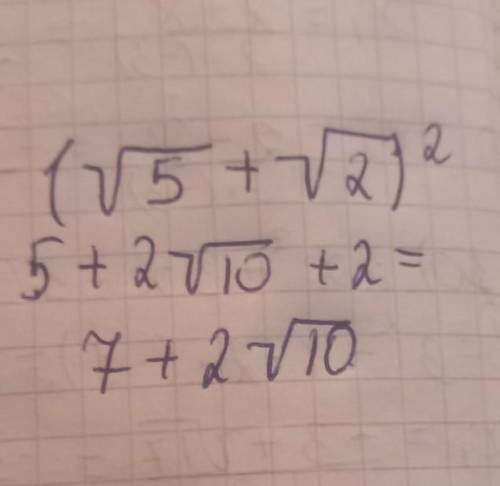 (√5 + √2)²
5 + 2√10 + 2 =
7 + 2√10